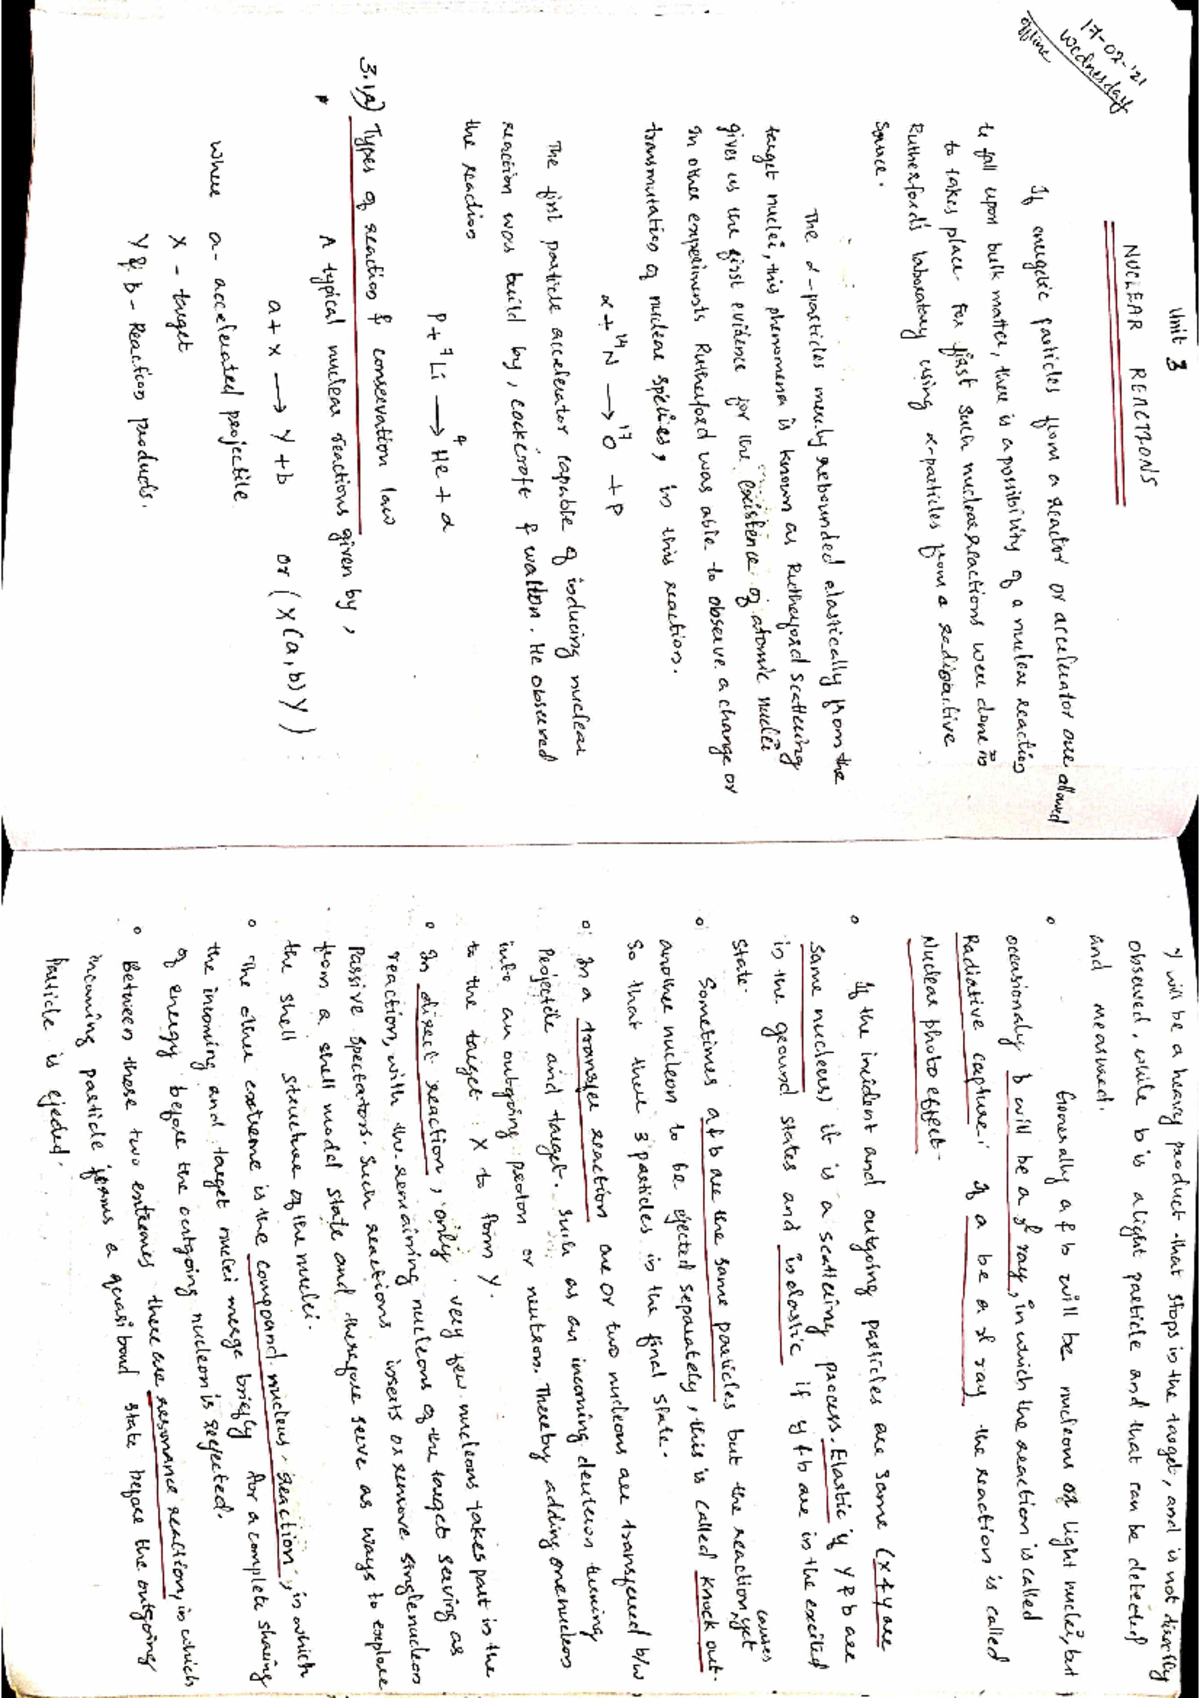 17-02-'21
Wednesday
offline
Unit 3
NUCLEAR REACTIONS
If energetic particles from a reactor or accelerator are allowed
to fall upon bulk matter, there is a possibility of a nuclear reaction
to takes place. For first such nuclear reactions were done in
Rutherford's laboratory using α-particles from a radioactive
source.
The α-particles merely rebounded elastically from the
target nuclei, this phenomena is known as Rutherford scattering
gives us the first evidence for the existence of atomic nuclei
In other experiments Rutherford was able to observe a change or
transmutation of nuclear species, in this reaction.
α + ¹⁴N → ¹⁷O + p
The first particle accelerator capable of inducing nuclear
reaction was build by, cockcroft & walton. He observed
the reaction
P + ⁷Li → ⁴He + α
3.1a) Types of reaction & conservation law
A typical nuclear reactions given by,
a + x → Y + b or (X(a,b)Y)
where a - accelerated projectile
X - target
Y & b - Reaction products.
Y will be a heavy product that stops in the target, and is not directly
observed, while b is a light particle and that can be detected
and measured.
° Generally a & b will be nucleons or light nuclei, but
occasionaly b will be a γ ray, in which the reaction is called
Radiative capture. if a be a γ ray the reaction is called
Nuclear photo effect.
° If the incident and outgoing particles are same (X & Y are
same nucleus) it is a scattering process. Elastic if Y & b are
in the ground states and inelastic if Y & b are in the excited
state.
° Sometimes a & b are the same particles but the reaction causes yet
another nucleon to be ejected separately, this is called knock out.
So that there 3 particles in the final state.
° In a transfer reaction one or two nucleons are transfered b/w
Projectile and target. such as an incoming deuteron turning
into an outgoing proton or neutron. Thereby adding one nucleon
to the target X to form Y.
° In direct reaction, only very few nucleons takes part in the
reaction, with the remaining nucleons of the target serving as
Passive spectators. Such reactions inserts or remove single nucleon
from a shell model state and therefore serve as ways to explore
the shell structure of the nuclei.
° The other extreme is the compound nucleus reaction, in which
the incoming and target nuclei merge briefly for a complete sharing
of energy before the outgoing nucleon is rejected.
° Between these two extremes there are resonance reaction, in which
incoming particle forms a quasibond state before the outgoing
Particle is ejected.